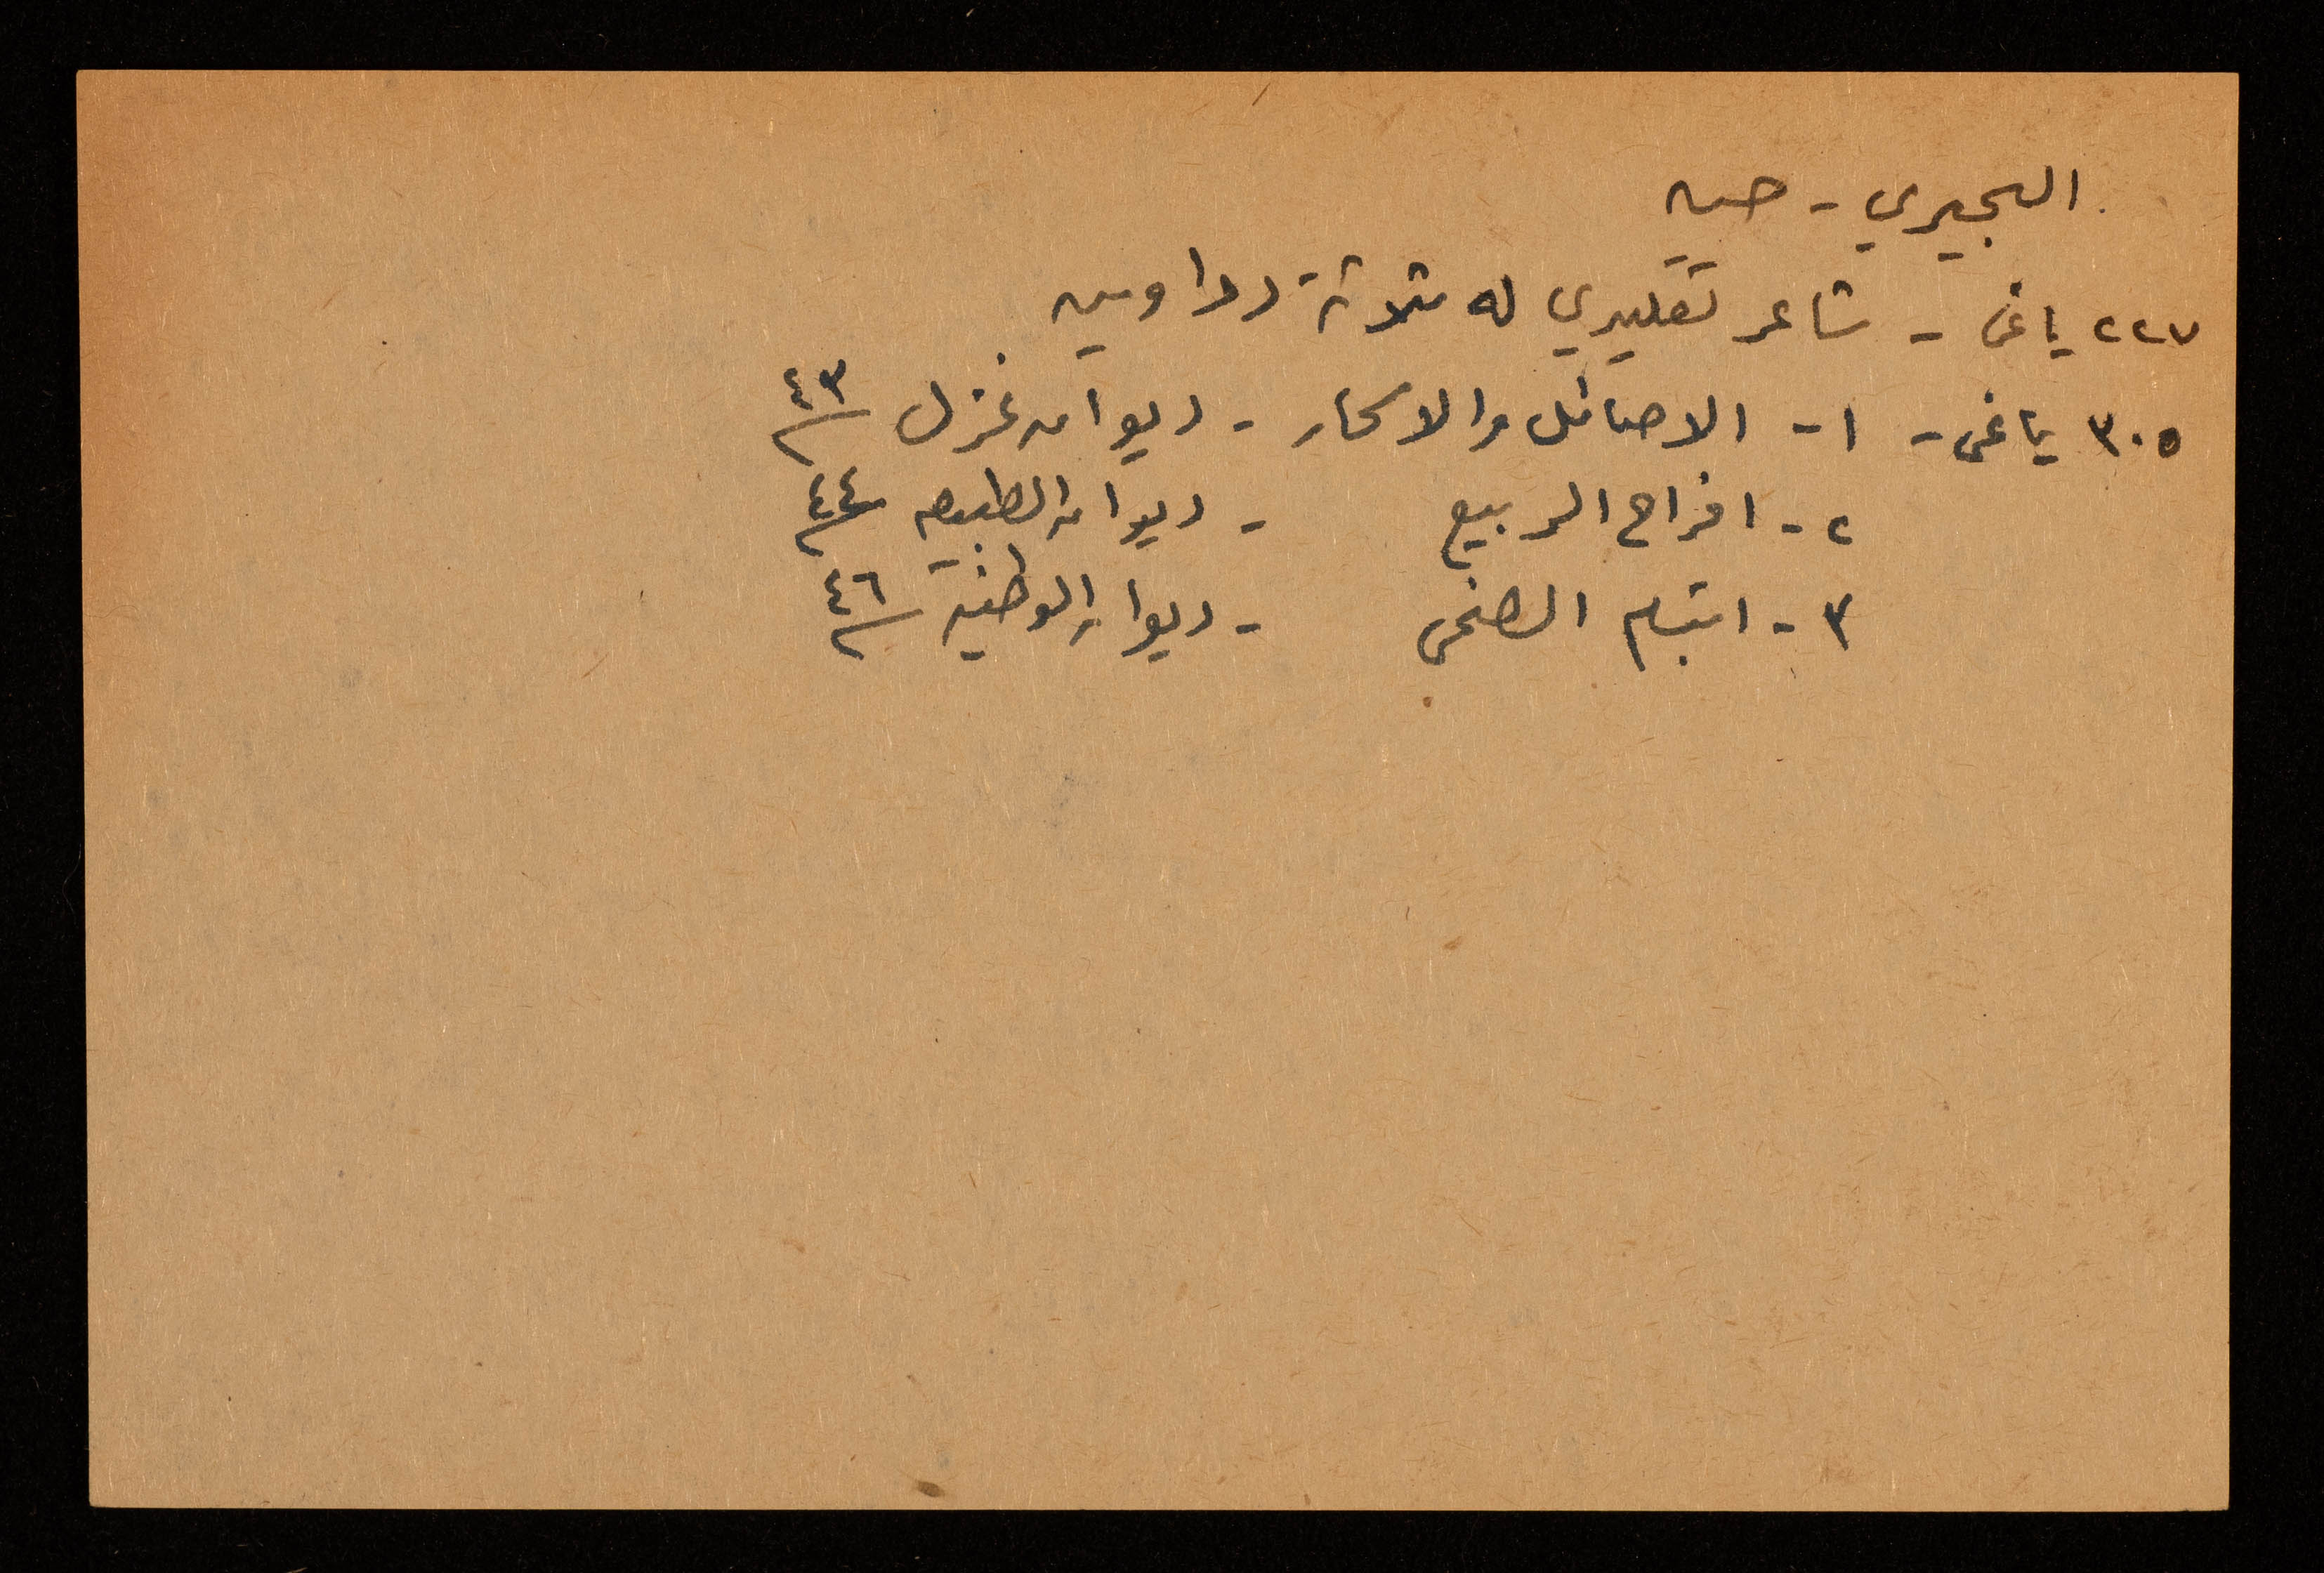 البحيري - حسن
٢٢٧ ياغي - شاعر تقليدي له ثلاثة دواوين
٣٠٥ ياغي - ١ - الاصائل والاسحار - ديوان غزل ٤٣
٢ - افراح الربيع - ديوان الطبيعة ٤٤
٣ - ابتسام الضحى - ديوان الوطنية ٤٦